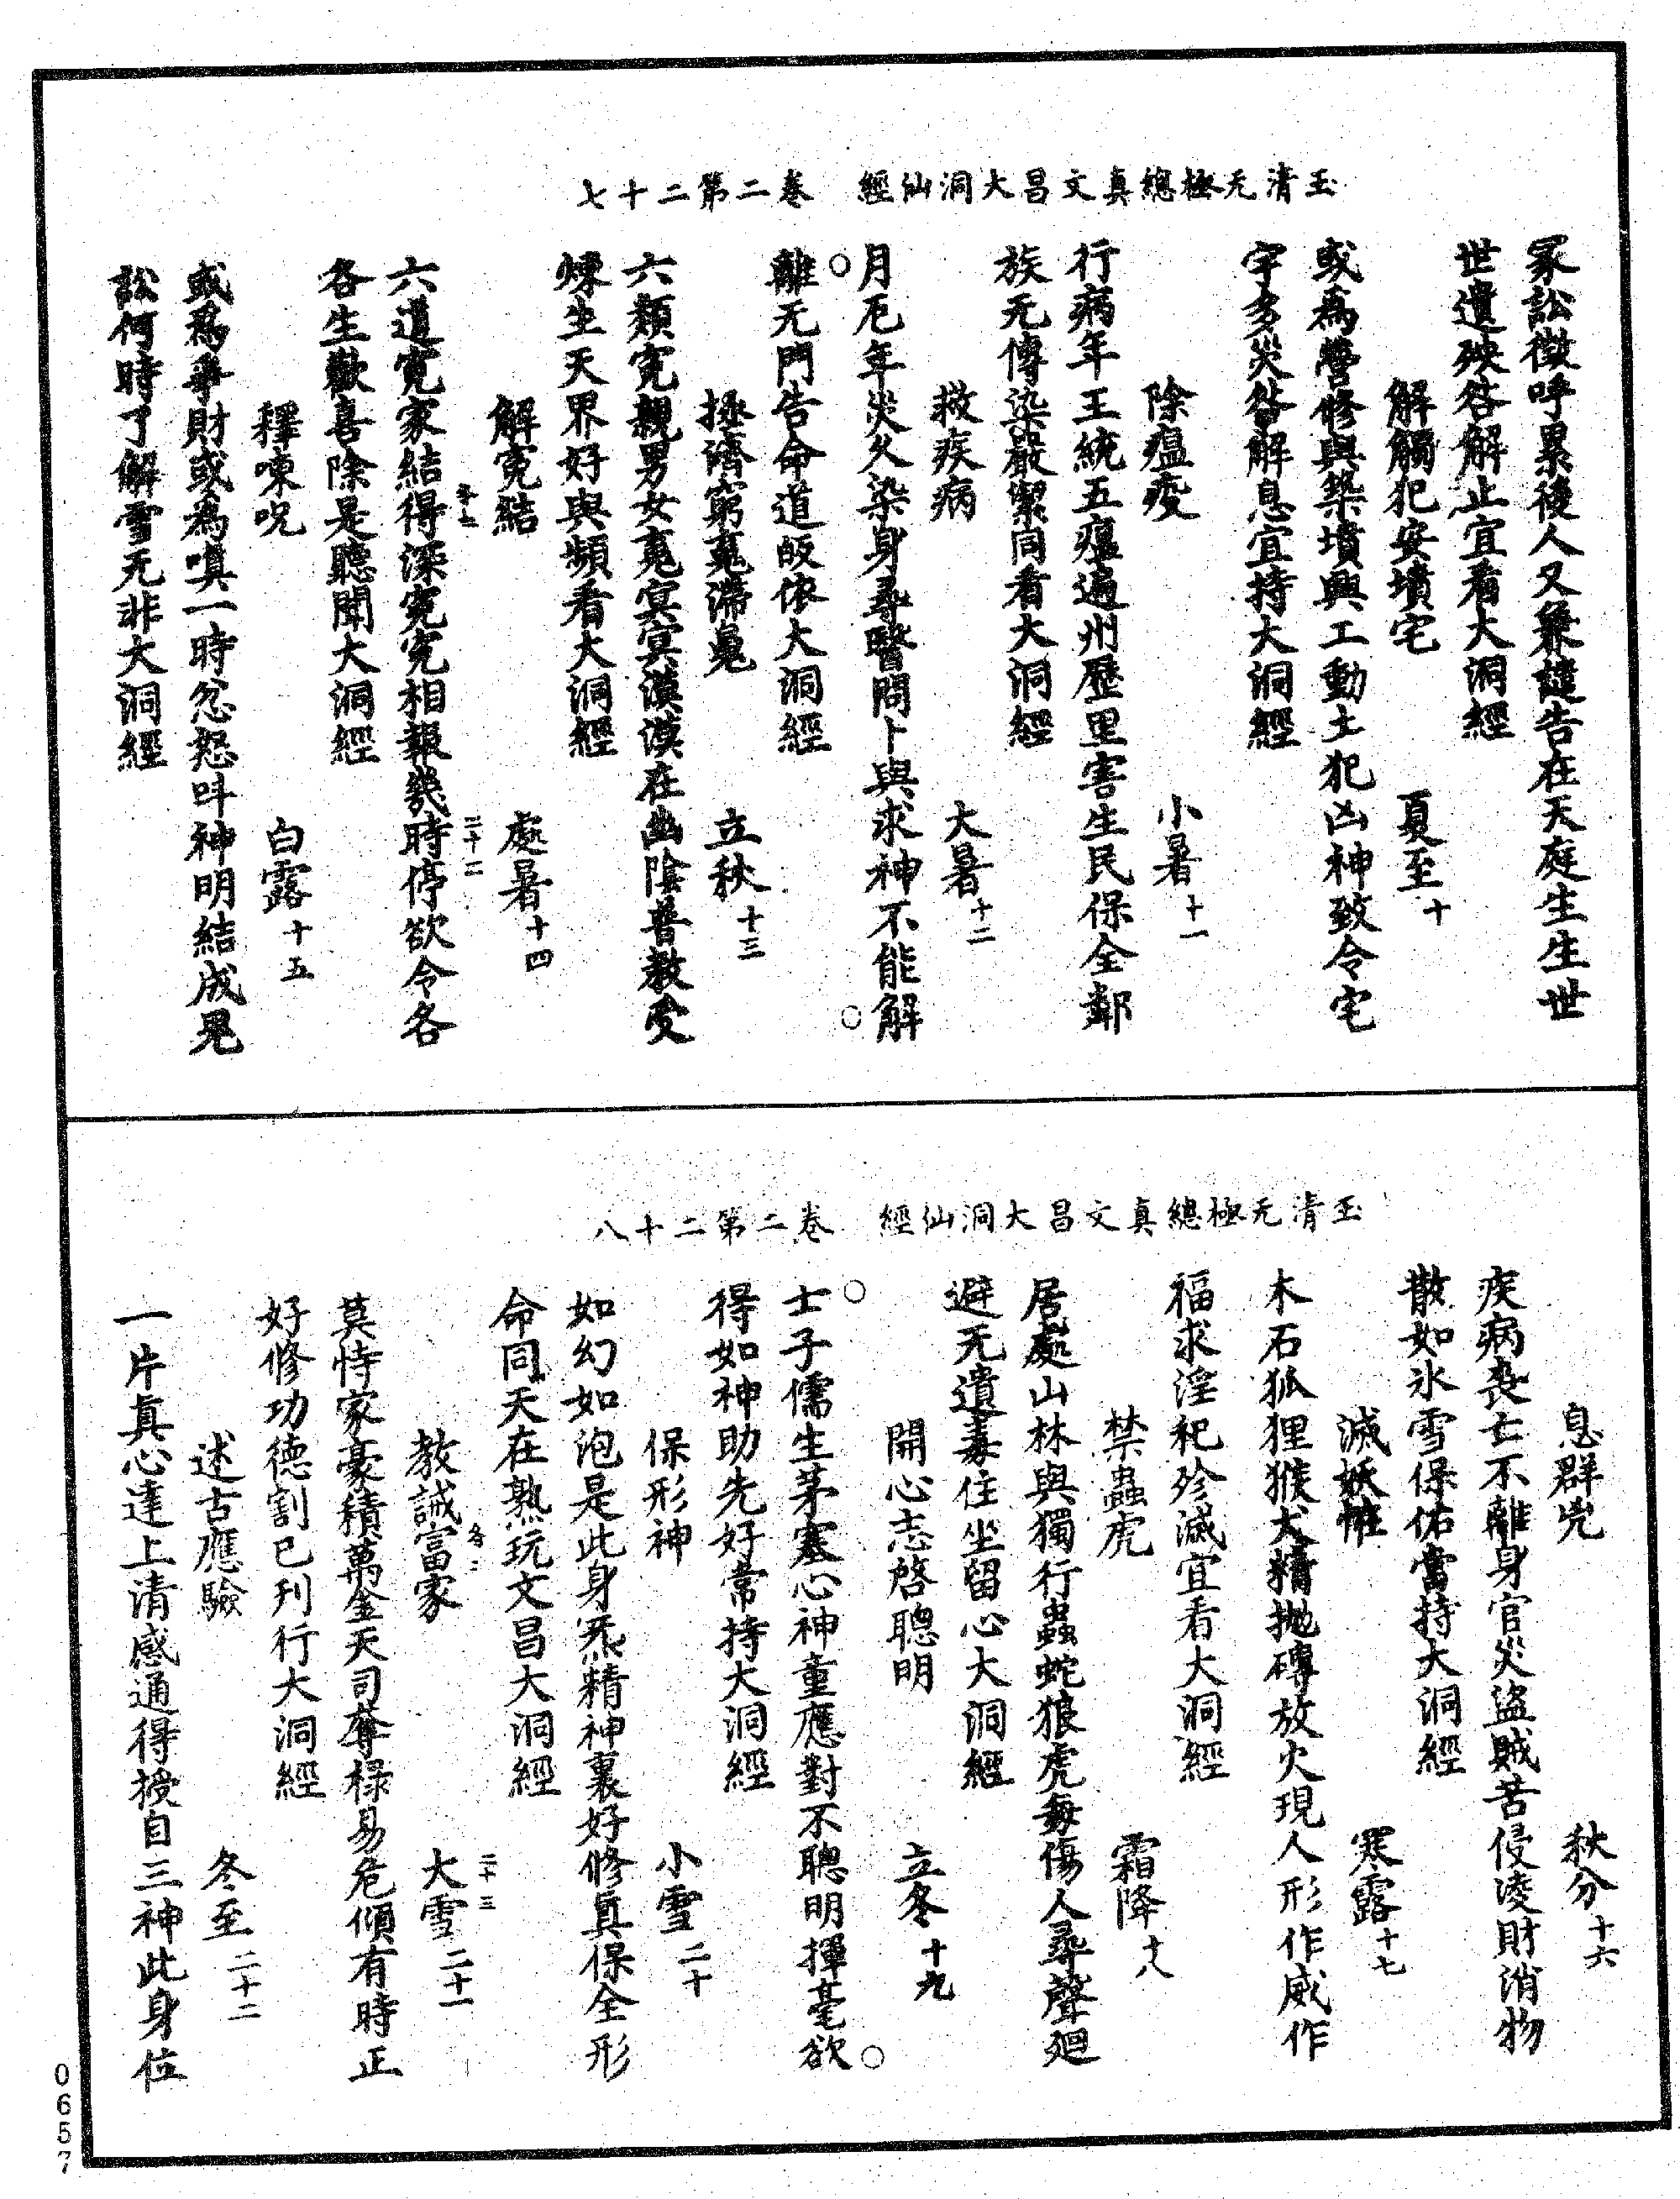 玉清无極總真文昌大洞仙經　卷二第二十七
冢訟徵呼累後人又兼讁告在天庭生生世
世遺殃咎解止宜看大洞經
解觸犯安墳宅　夏至十
或為營修與築墳興工動土犯凶神致令宅
宇多災咎解息宜持大洞經
除瘟疫　小暑十一
行病年王統五瘟遍州歷里害生民保全鄰
族无傳染嚴潔同看大洞經
救疾病　大暑十二
月厄年災久染身尋醫問卜與求神不能解
離无門告命道皈依大洞經
拯濟窮䰟滯魄　立秋十三
六類寃親男女䰟冥冥漠漠在幽陰普教受
煉生天界好與頻看大洞經
解寃結　處暑十四
六道寃家結得深寃寃相報幾時停欲令各
各生歡喜除是聽聞大洞經
釋哽呪　白露十五
或為爭財或為嗔一時忿怒呌神明結成冤
訟何時了解雪无非大洞經
玉清无極總真文昌大洞仙經　卷二第二十八
息群兇　秋分十六
疾病喪亡不離身官災盜賊苦侵凌財消物
散如氷雪保佑當持大洞經
滅妖怪　寒露十七
木石狐狸猴犬精拋磚放火現人形作威作
福求淫祀殄滅宜看大洞經
禁蟲虎　霜降十八
居處山林與獨行蟲蛇狼虎每傷人尋聲廻
避无遺毒住坐留心大洞經
開心志啓聰明　立冬十九
士子儒生茅塞心神童應對不聰明揮毫欲
得如神助先好常持大洞經
保形神　小雪二十
如幻如泡是此身炁精神裏好修真保全形
命同天在熟玩文昌大洞經
教誡富家　大雪二十一
莫恃家豪積萬金天司奪祿易危傾有時正
好修功德割己刋行大洞經
述古應驗　冬至二十二
一片真心達上清感通得授自三神此身位
二十二
二十三
0657